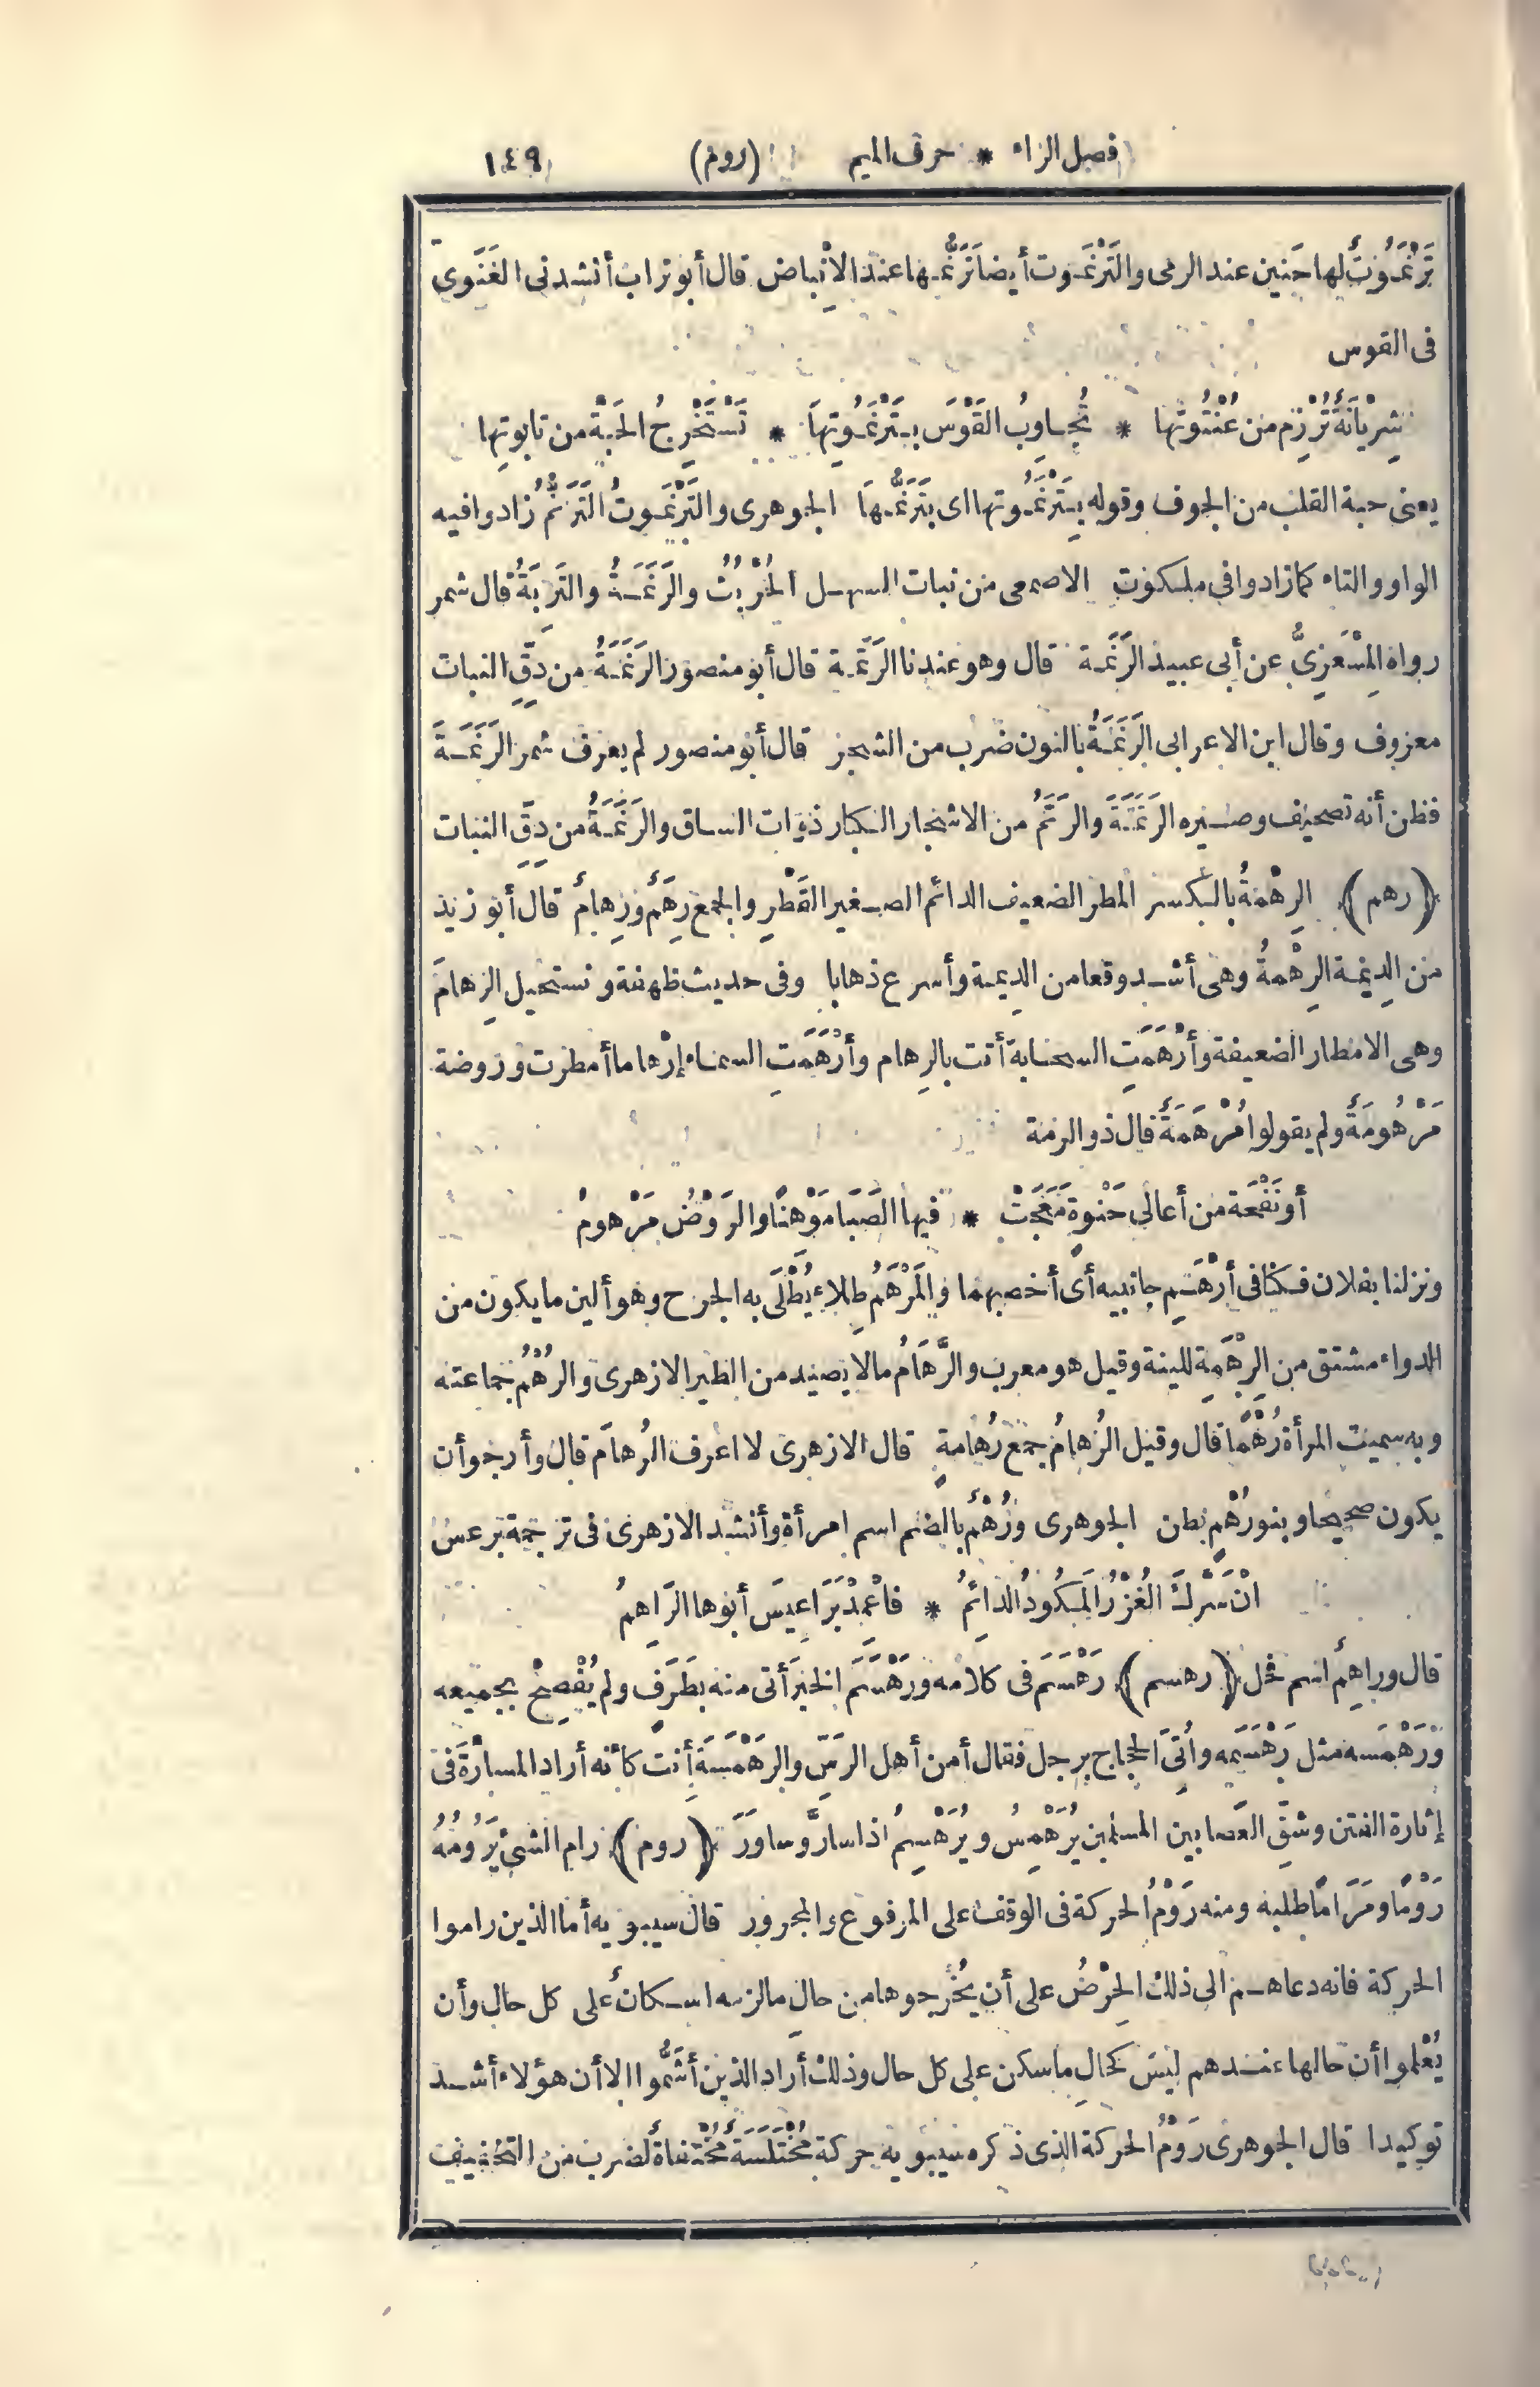 فصل الراء * حرف الميم (روم) ١٤٩
تَرْنَمُوتٌ لها حَنِين عند الرمى والتَرْنَمُوت أيضا تَرَنُّمها عند الانْباض قال أبو تراب أنشدنى الغَنَوى
فى القوس
شِرْيانَةٌ تُرْزِم من عُنْتُوتِها * تُجاوِبُ القَوْسَ بِتَرْنَمُوتِها * تَسْتَخْرِجُ الحَبَّةَ من تابوتِها
يعنى حبة القلب من الجوف وقوله بِتَرْنَمُوتها اى بتَرَنُّمها الجوهرى والتَرْنَمُوتُ التَرَنُّمُ زادوا فيه
الواو والتاء كما زادوا فى ملكوت الاصمعى من نبات السهل الحُرْبُثُ والرَنَمَةُ والتَرِبَةُ قال شمر
رواه المِسْعَرِىُّ عن أبى عبيد الرَنَمة قال وهو عندنا الرَتَمة قال أبو منصور الرَنَمَةُ من دِقِّ النبات
معروف وقال ابن الاعرابى الرَنَمَةُ بالنون ضرب من الشجر قال أبو منصور لم يعرف شمر الرَنَمَةَ
فظن أنه تصحيف وصيره الرَتَمَةَ والرَتَمُ من الاشجار الكبار ذوات الساق والرَنَمَةُ من دِقِّ النبات
﴿رهم﴾ الرِهْمَةُ بالكسر المطر الضعيف الدائم الصغير القَطْرِ والجمع رِهَمٌ ورِهامٌ قال أبو زيد
من الدِيمَة الرِهْمةُ وهى أشد وقعا من الديمة وأسرع ذهابا وفى حديث طهفة ونستحيل الرِهامَ
وهى الامطار الضعيفة وأَرْهَمَتِ السحابة أتت بالرِهام وأَرْهَمَتِ السماء إرْهاما أمطرت وروضة
مَرْهُومَةٌ ولم يقولوا مُرْهَمَةٌ قال ذو الرمة
أو نَفْحَة من أعالى حَنْوةٍ مَعَجَتْ * فيها الصَبَا مَوْهنًا والرَوْضُ مَرْهومُ
ونزلنا بفلان فكنا فى أَرْهَمِ جانبيه أى أخصبهما والمَرْهَمُ طِلاءٌ يُطْلَى به الجرح وهو ألين ما يكون من
الدواء مشتق من الرِهْمةِ للينة وقيل هو معرب والرُّهَامُ مالا يصيد من الطير الازهرى والرُهْمُ جماعته
وبه سميت المرأة رُهْمًا قال وقيل الرُهامُ جمع رُهامةٍ قال الازهرى لا اعرف الرُهامَ قال وأرجو أن
يكون صحيحا وبنو رُهْمٍ بطن الجوهرى ورُهْمٌ بالضم اسم امرأة وأنشد الازهرى فى ترجمة برعس
انْ سَرَّكَ الغُزْرُ المَكُودُ الدائمُ * فاعْمِدْ بَرَاعِيسَ أبوها الرَاهِمُ
قال وراهِمٌ اسم فحل ﴿رهسم﴾ رَهْسَمَ فى كلامه ورَهْسَمَ الخبرَ أتى منه بطَرَفٍ ولم يُفْصِحْ بجميعه
ورَهْمَسه مثل رَهْسَمه وأُتِىَ الحجاج برجل فقال أمن أهل الرَسِّ والرَهْمَسَةِ أنت كأنه أراد المسارَّةَ فى
إثارة الفتن وشقِّ العصا بين المسلمين يُرَهْمِسُ ويُرَهْسِمُ اذا سارَّ وساوَرَ ﴿روم﴾ رام الشئَ يَرُومُهُ
رَوْمًا ومَرَامًا طلبه ومنه رَوْمُ الحركة فى الوقف على المرفوع والمجرور قال سيبويه أما الذين راموا
الحركة فانه دعاهم الى ذلك الحِرْصُ على أن يُخْرِجوها من حالِ مالزمه اسكانٌ على كل حال وأن
يُعْلموا أن حالها عندهم ليس كحالِ ما سكن على كل حال وذلك أراد الذين أَشَمُّوا الا أن هؤلاء أشد
توكيدا قال الجوهرى رَوْمُ الحركة الذى ذكره سيبويه حركة مُخْتَلَسَةٌ مُخْتفاةٌ لضرب من التخفيف